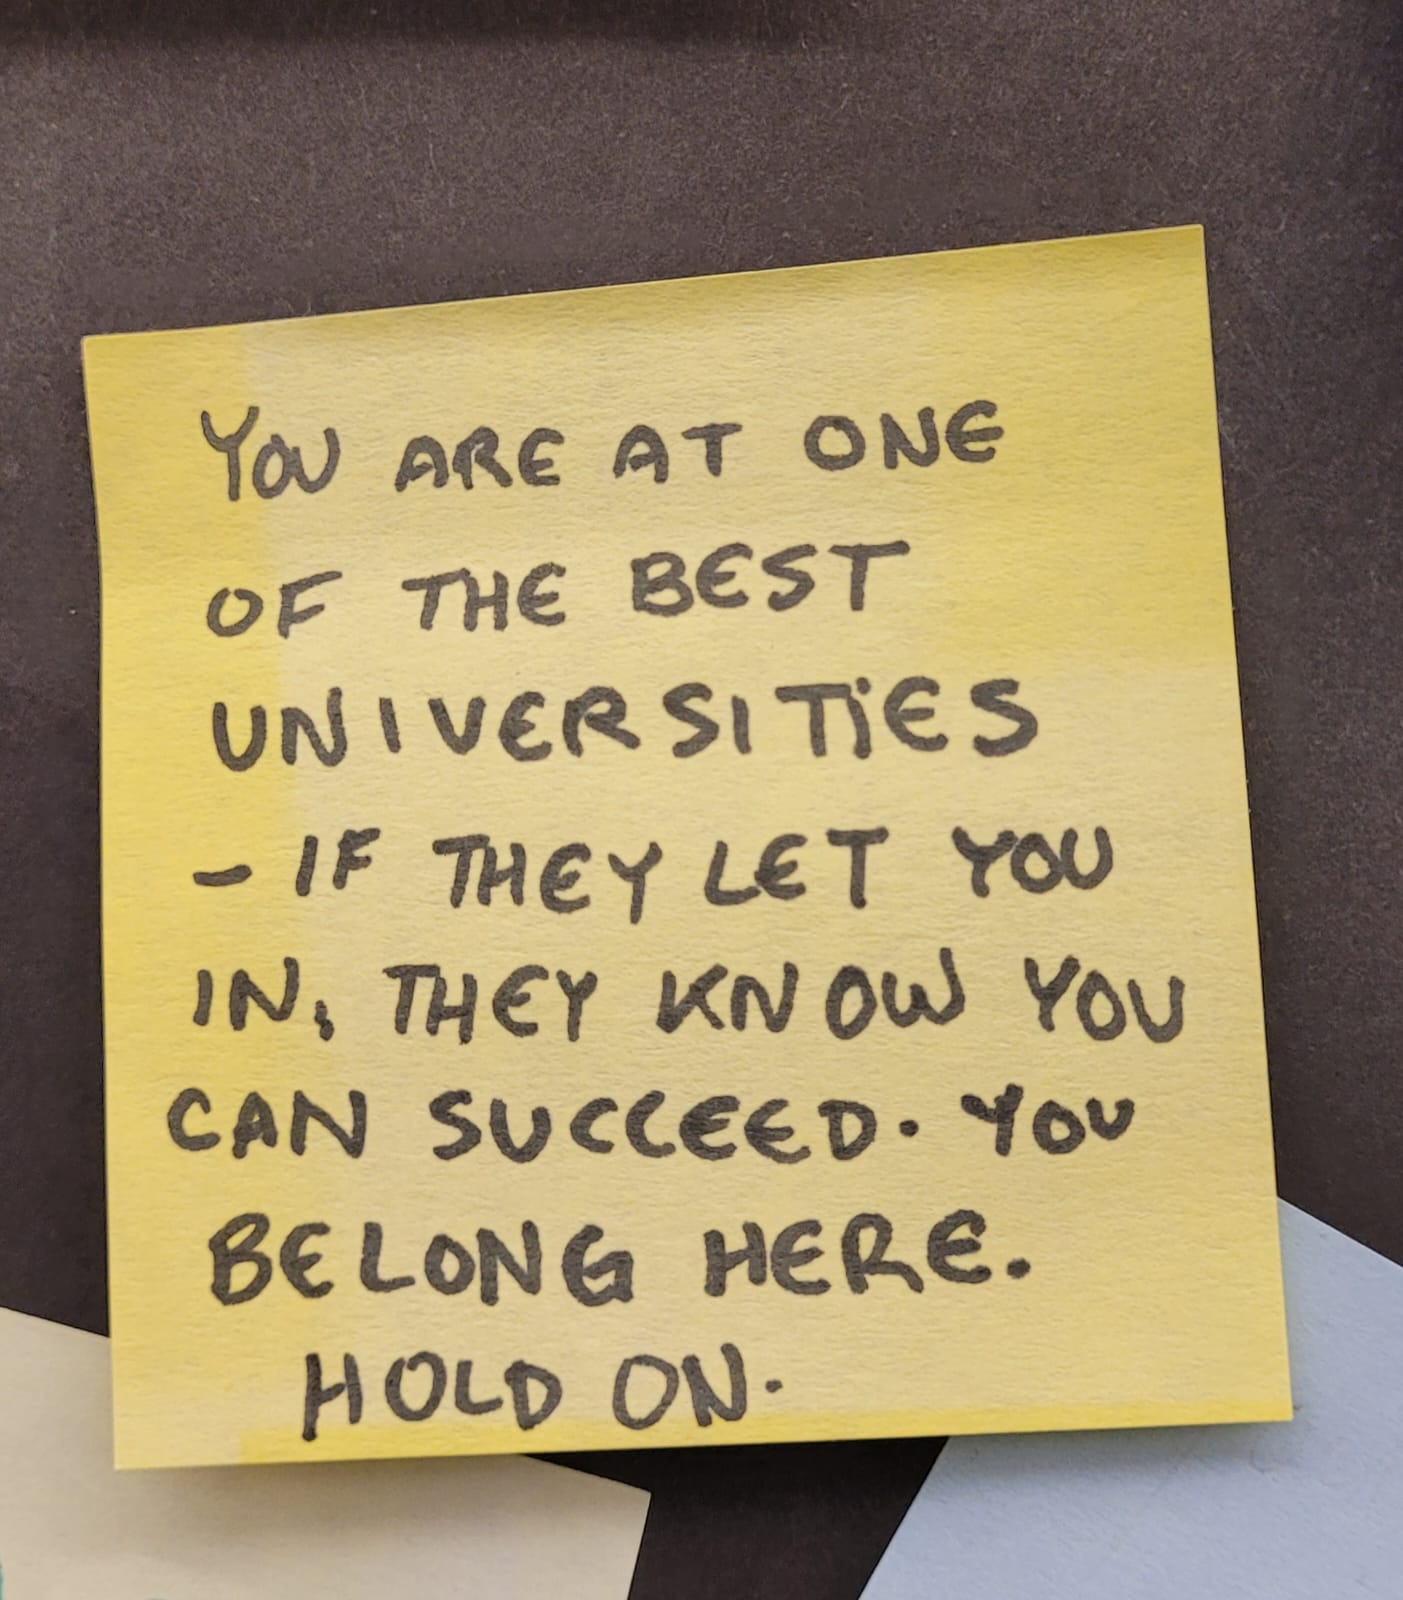 YOU ARE AT ONE
OF THE BEST
UNIVERSITIES
- IF THEY LET YOU
IN, THEY KNOW YOU
CAN SUCCEED. YOU
BELONG HERE.
HOLD ON.